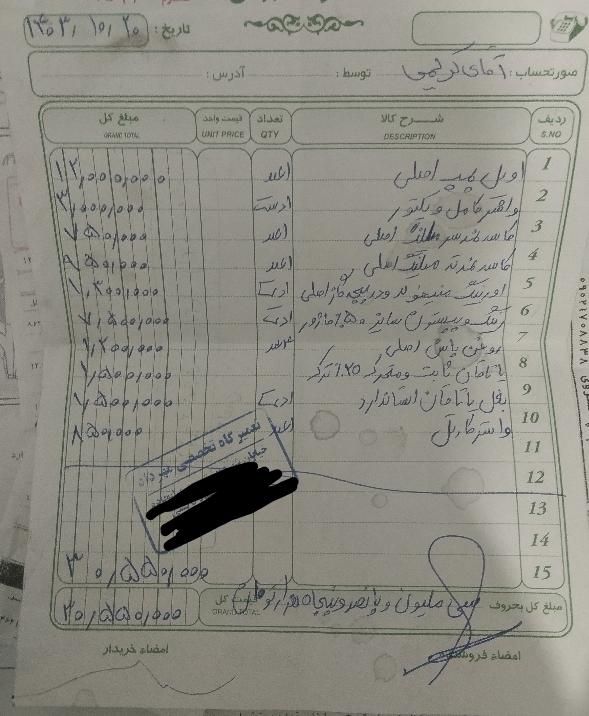 تاریخ: ۱۴۰۳/۱۰/۲۰
صورتحساب: آقای کریمی توسط: آدرس:
ردیف شــرح کالا تعداد قیمت واحد مبلغ کل
S.NO DESCRIPTION QTY UNIT PRICE GRAND TOTAL
1 اویل پمپ اصلی ۱عدد
2 واشر کامل ویکتور ۱دست ۳,۰۰۰,۰۰۰
3 کاسه نمد سر میلنگ اصلی ۱عدد ۷۵۰,۰۰۰
4 کاسه نمد ته میلنگ اصلی ۱عدد ۹۵۰,۰۰۰
5 اورینگ منیفولد و دریچه گاز اصلی ۱دست ۱,۳۰۰,۰۰۰
6 رینگ و پیستون سایز ۵۰٪ ۱دست ۷,۵۰۰,۰۰۰
7 روغن اصلی ۱,۲۰۰,۰۰۰
8 یاتاقان ثابت و متحرک ۲۵٪ ترک ۱,۵۰۰,۰۰۰
9 بغل یاتاقان استاندارد ۱دست
10 واشر ۱عدد ۸۵۰,۰۰۰
11
تعمیرگاه تخصصی
خیابان
12
13
14
15 ۳۰,۵۵۰,۰۰۰
مبلغ کل بحروف سی ملیون و پانصد و پنجاه هزار تومان قیمت کل ۳۰,۵۵۰,۰۰۰
GRAND TOTAL
امضاء فروشنده امضاء خریدار